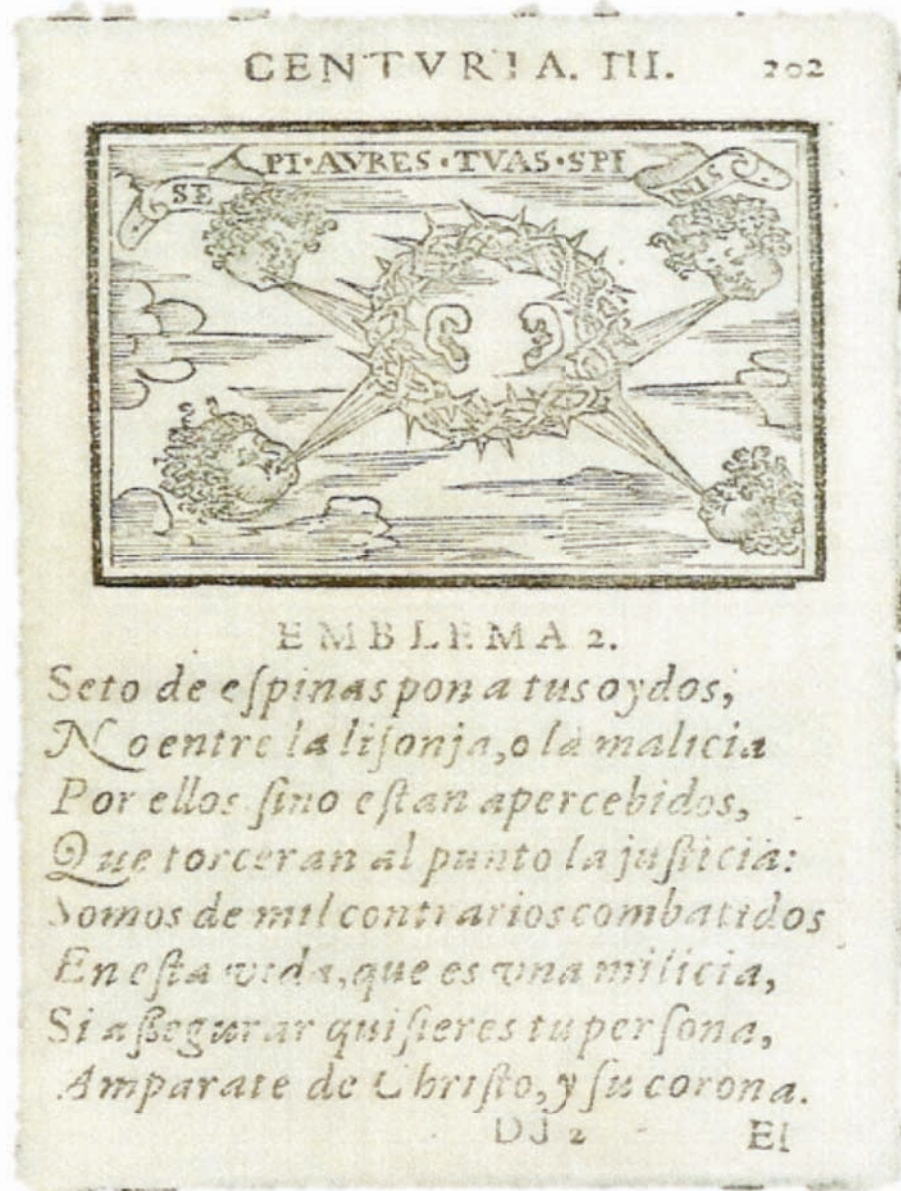 CENTVRIA. III. 202
SEPI·AVRES·TVAS·SPINIS
EMBLEMA 2.
Seto de eſpinas pon a tus oydos,
No entre la liſonja, o la malicia
Por ellos ſino eſtan apercebidos,
Que torceran al punto la juſticia:
Somos de mil contrarios combatidos
En eſta vida, que es vna milicia,
Si aſſegurar quiſieres tu perſona,
Amparate de Chriſto, y ſu corona.
2
El